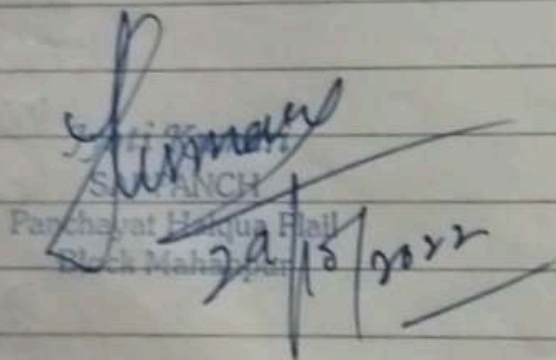 Kumari
SARPANCH
Panchayat Halqua Plail
Block Mahanpur
29/10/2022